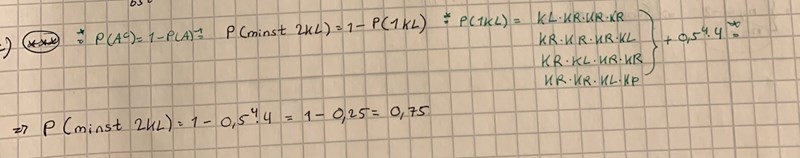 c) *** P(Aᶜ)=1-P(A) P(minst 2KL)=1-P(1KL) P(1KL)= KL·KR·KR·KR
KR·KR·KR·KL + 0,5⁴·4
KR·KL·KR·KR
KR·KR·KL·KR
⇒ P(minst 2KL)=1-0,5⁴·4 = 1-0,25=0,75